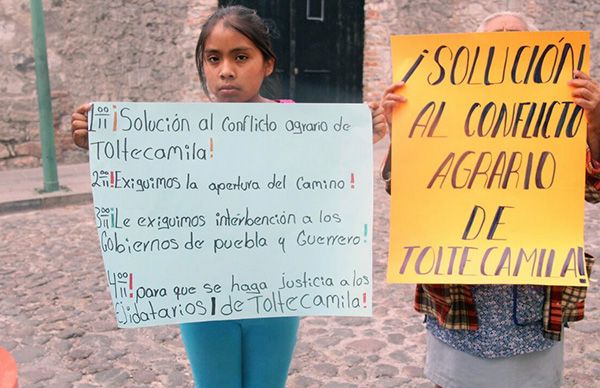 1ºº¡Solución al conflicto agrario de
Toltecamila!
2ºº¡Exiguimos la apertura del Camino!
3ºº¡Le exiguimos interbención a los
Gobiernos de puebla y Guerrero!
4ºº¡para que se haga justicia a los
Ejidatarios de Toltecamila!
¡SOLUCIÓN
AL CONFLICTO
AGRARIO
DE
TOLTECAMILA!